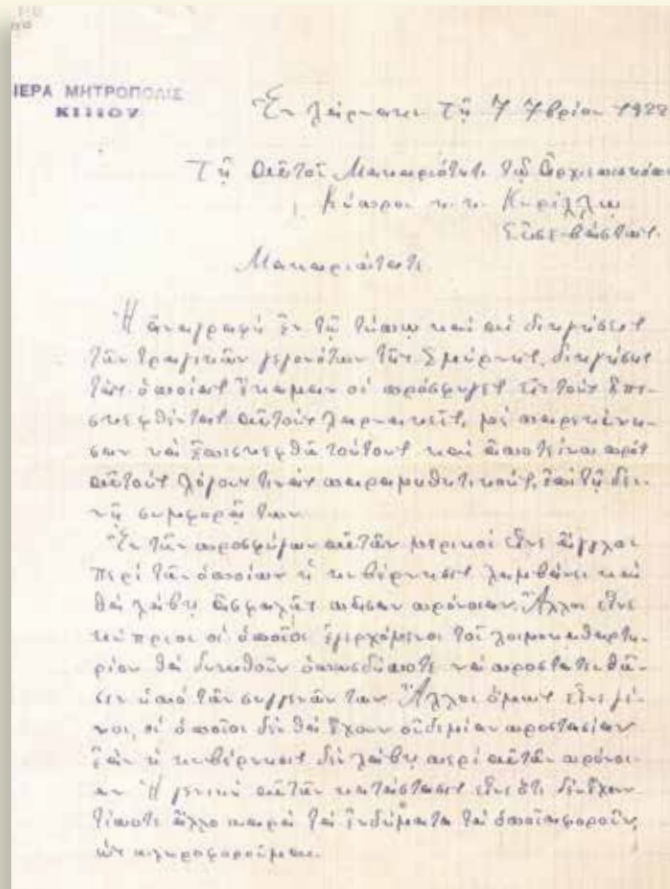 ΙΕΡΑ ΜΗΤΡΟΠΟΛΙΣ
ΚΙΤΙΟΥ
Ἐν Λάρνακι τῇ 7 7βρίου 1922
Τῇ Αὐτοῦ Μακαριότητι τῷ Ἀρχιεπισκόπῳ
Κύπρου κ.κ. Κυρίλλῳ
Εὐσεβάστως.
Μακαριώτατε
Ἡ ἀναγραφὴ ἐν τῷ τύπῳ καὶ αἱ διηγήσεις
τῶν τραγικῶν γεγονότων τῆς Σμύρνης, διηγήσεις
τὰς ὁποίας ἔκαμαν οἱ πρόσφυγες εἰς τοὺς ἐπι-
σκεφθέντας αὐτοὺς Λαρνακεῖς, μὲ παρεκίνη-
σαν νὰ ἐπισκεφθῶ τούτους καὶ ἀποτείνω πρὸς
αὐτοὺς λόγους τινὰς παραμυθητικούς, ἐπὶ τῇ δει-
νῇ συμφορᾷ των.
Ἐκ τῶν προσφύγων αὐτῶν μερικοὶ εἶνε ἄγγλοι
περὶ τῶν ὁποίων ἡ κυβέρνησις λαμβάνει καὶ
θὰ λάβῃ ἀσφαλῶς πᾶσαν πρόνοιαν. Ἄλλοι εἶνε
κύπριοι οἱ ὁποῖοι ἐξερχόμενοι τοῦ λοιμοκαθαρτη-
ρίου θὰ δυνηθοῦν ὁπωσδήποτε νὰ προστατευθῶ-
σιν ὑπὸ τῶν συγγενῶν των. Ἄλλοι ὅμως εἶνε ξέ-
νοι, οἱ ὁποῖοι δὲν θὰ ἔχουν οὐδεμίαν προστασίαν
ἐὰν ἡ κυβέρνησις δὲν λάβῃ περὶ αὐτῶν πρόνοι-
αν. Ἡ γενικὴ αὐτῶν κατάστασις εἶνε ὅτι δὲν ἔχουν
τίποτε ἄλλο παρὰ τὰ ἐνδύματα τὰ ὁποῖα φοροῦν,
ὡς πληροφοροῦμαι.